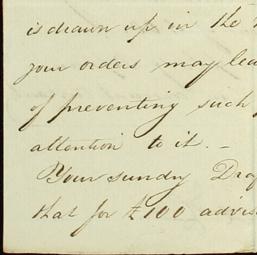 is drawn up in the
your orders may lea
of preventing such
attention to it. –
Your sundry Dra
that for £100 advis